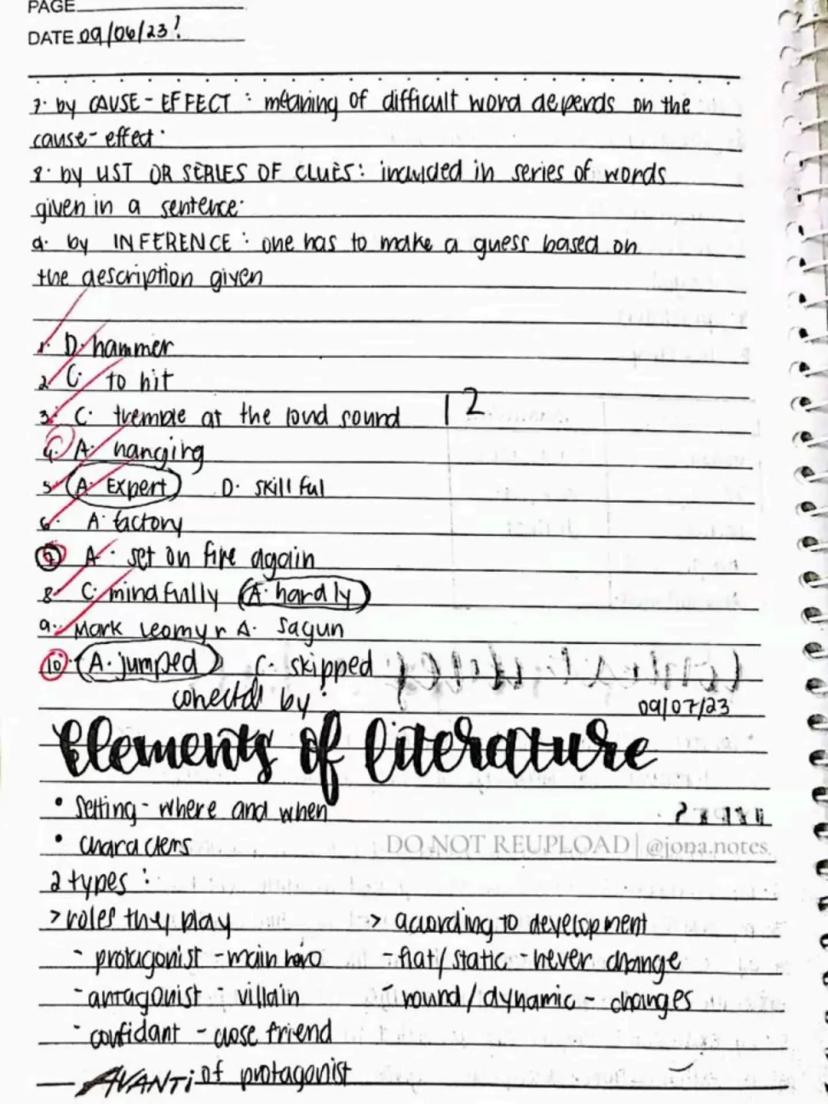 PAGE
DATE 09/06/23!
7. by CAUSE-EFFECT : meaning of difficult word depends on the
cause-effect.
8. by LIST OR SERIES OF CLUES: included in series of words
given in a sentence.
9. by INFERENCE : one has to make a guess based on
the description given
1. D. hammer
2. C. to hit
3. C. tremble at the loud sound 12
4. A. hanging
5. A. Expert D. skillful
6. A. factory
7. A. set on fire again
8. C. mindfully A. hardly
9. Mark Leomyr A. Sagun
10. A. jumped C. skipped
corrected by: 09/07/23
Elements of literature
• setting - where and when
• characters
DO NOT REUPLOAD | @jona.notes
2 types :
> roles they play > according to development
- protagonist - main hero - flat/static - never change
- antagonist - villain - round/dynamic - changes
- confidant - close friend
AVANTi of protagonist